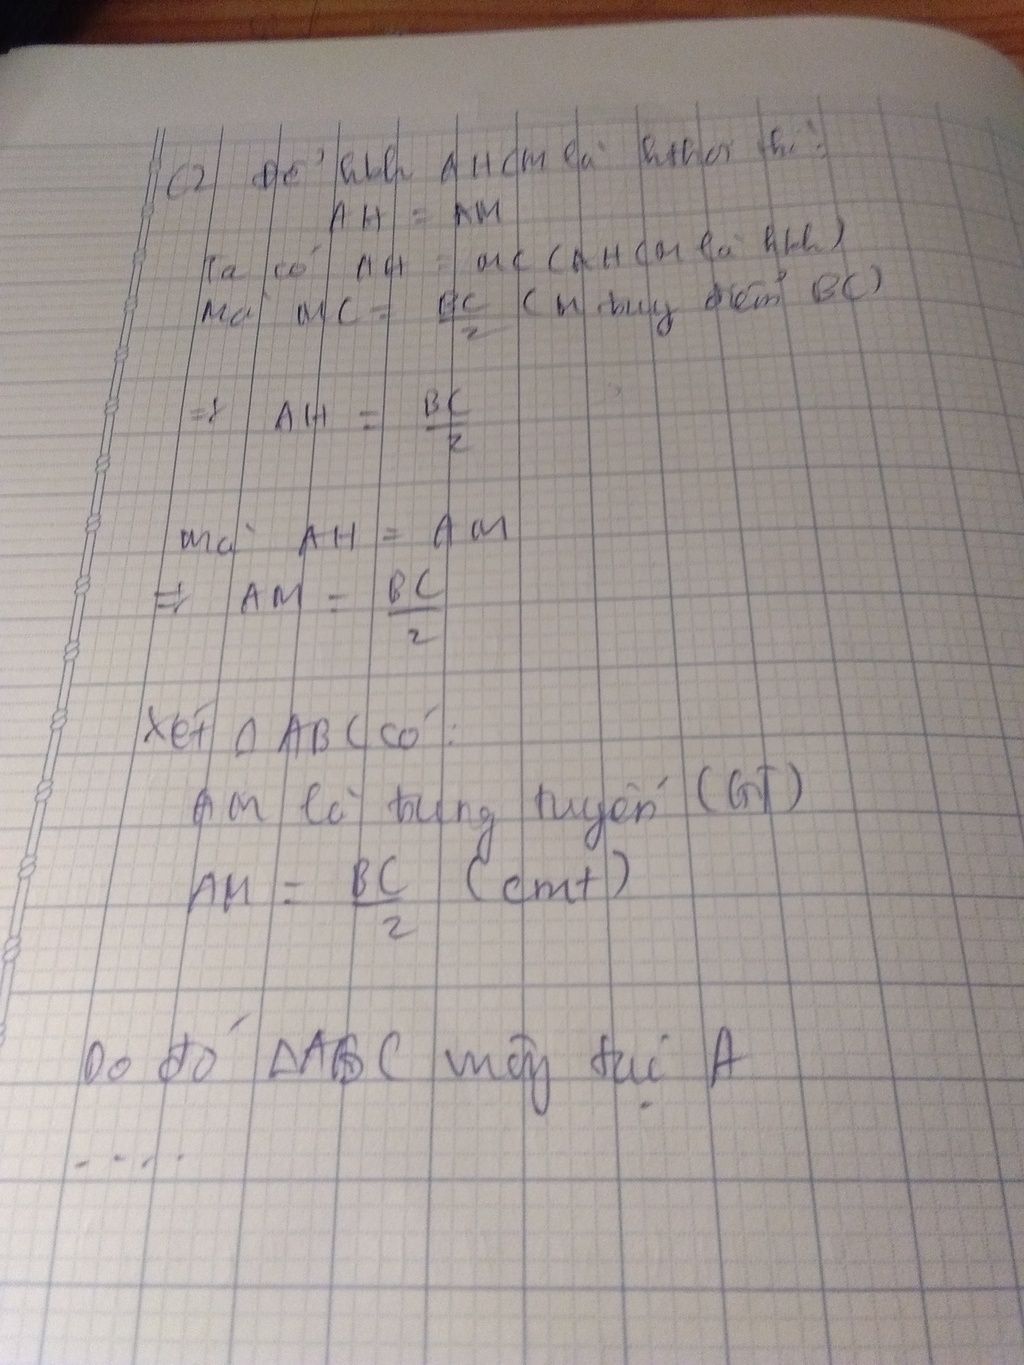 C2) Để hbh AHCM là hthoi thì:
AH = AM
Ta có AH = MC (AHCM là hbh)
Mà MC = BC/2 (M trung điểm BC)
=> AH = BC/2
mà AH = AM
=> AM = BC/2
Xét Δ ABC có:
AM là trung tuyến (GT)
AM = BC/2 (cmt)
Do đó ΔABC vuông tại A
....